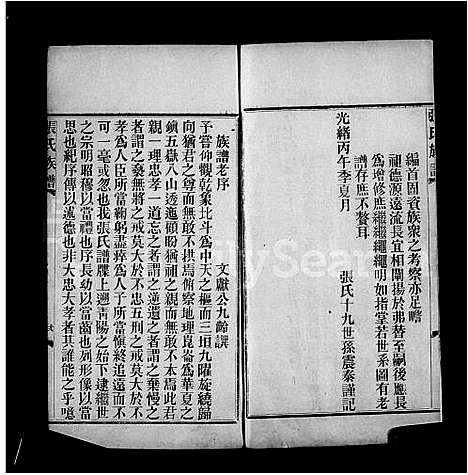 編首固資族衆之考察亦足瞻
祖德源遠流長宜相闡揚於弗替至嗣後應長
爲增修庶繼繼繩繩明如指堂若世系圖有老
譜存庶不贅耳
光緒丙午季夏月
張氏十九世孫震泰謹記
族譜老序
文獻公九齡譔
予嘗仰觀乾象北斗爲中天之樞而三垣九曜旋繞歸
向猶君之尊而無敢不拱焉俯察地理崑崙爲華夏之
鎮五嶽八山透迤顧盻猶祖之親而無敢不本焉此君
親一理忠孝一道忘之者謂之逆遺之者謂之棄慢之
者謂之褻無將之戒莫大於不忠五刑之戒莫大於不
孝爲人臣所當鞠躬盡瘁爲人子所當愼終追遠而不
可一毫或忽也我張氏譜牒上遡靑陽之始下逮繼世
之宗明昭穆以當禮也序長幼以當齒也列形像以當
思也紀序傳以述德也非大忠大孝者其誰能之乎噫
張氏族譜